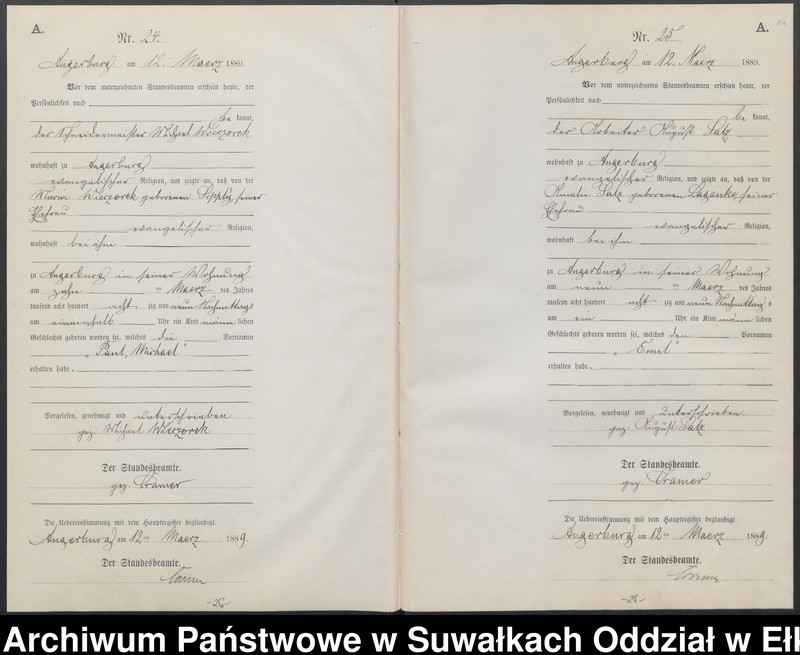 A.
Nr. 24.
Angerburg am 12ten Maerz 1889.
Vor dem unterzeichneten Standesbeamten erschien heute, der
Persönlichkeit nach
be kannt,
der Schneidermeister Michael Wiezorek
wohnhaft zu Angerburg
evangelischer Religion, und zeigte an, daß von der
Maria Wiezorek geborenen seiner
Ehefrau
evangelischer Religion,
wohnhaft bei ihm
zu Angerburg in seiner Wohnung
am zehn ten Maerz des Jahres
tausend acht hundert acht zig und neun Nachmittags
um eineinhalb Uhr ein Kind männ lichen
Geschlechts geboren worden sei, welches die Vornamen
"Paul, Michael"
erhalten habe.
Vorgelesen, genehmigt und unterschrieben
gez. Michael Wiezorek
Der Standesbeamte.
gez. Cramer
Die Uebereinstimmung mit dem Hauptregister beglaubigt.
Angerburg am 12ten Maerz 1889.
Der Standesbeamte.
Cramer
A.
Nr. 25.
Angerburg am 12. Maerz 1889.
Vor dem unterzeichneten Standesbeamten erschien heute, der
Persönlichkeit nach
be kannt,
der Arbeiter August Satz
wohnhaft zu Angerburg
evangelischer Religion, und zeigte an, daß von der
Amalie Satz geborenen seiner
Ehefrau
evangelischer Religion,
wohnhaft bei ihm
zu Angerburg in seiner Wohnung
am neun ten Maerz des Jahres
tausend acht hundert acht zig und neun Nachmittag s
um ein Uhr ein Kind männ lichen
Geschlechts geboren worden sei, welches den Vornamen
"Emil"
erhalten habe.
Vorgelesen, genehmigt und unterschrieben.
gez. August Satz
Der Standesbeamte.
gez. Cramer
Die Uebereinstimmung mit dem Hauptregister beglaubigt.
Angerburg am 12ten Maerz 1889.
Der Standesbeamte.
Cramer
Archiwum Państwowe w Suwałkach Oddział w Ełk